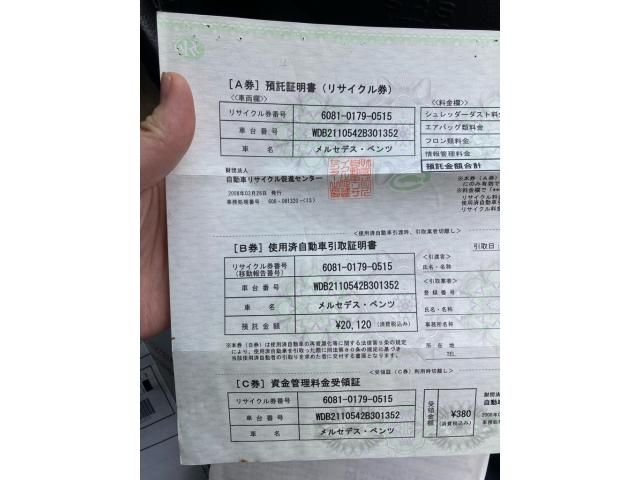 [A券] 預託証明書(リサイクル券)
<車両欄>
リサイクル券番号 6081-0179-0515
車台番号 WDB2110542B301352
車名 メルセデス・ベンツ
<料金欄>
シュレッダーダスト料
エアバッグ類料金
フロン類料金
情報管理料金
預託金額合計
財団法人
自動車リサイクル促進センター
2008年03月26日 発行
※本券(A券)
にのみ有効で
※料金欄で「**
リサイクル料
使用済自動車引
リサイクル料
使用済自動車引渡時、引取業者切離し
[B券] 使用済自動車引取証明書
引取日:
リサイクル券番号
(移動報告番号) 6081-0179-0515
車台番号 WDB2110542B301352
車名 メルセデス・ベンツ
預託金額 ¥20,120 (消費税込み)
<引渡者>
氏名・名称
<引取業者>
登録番号
氏名・名称
事務所名称
所在地
TEL.
※本券(B券)は使用済自動車の再資源化等に関する法律第9条の規定
により、使用済自動車を引取った際に同法第80条の規定に基づき
当該使用済自動車の引取りを求めた者に交付する書面となります。
<受領証(C券)利用時切離し>
[C券] 資金管理料金受領証
リサイクル券番号 6081-0179-0515
車台番号 WDB2110542B301352
車名 メルセデス・ベンツ
受領金額 ¥380
(消費税込み)
財団法
自動車
2008年